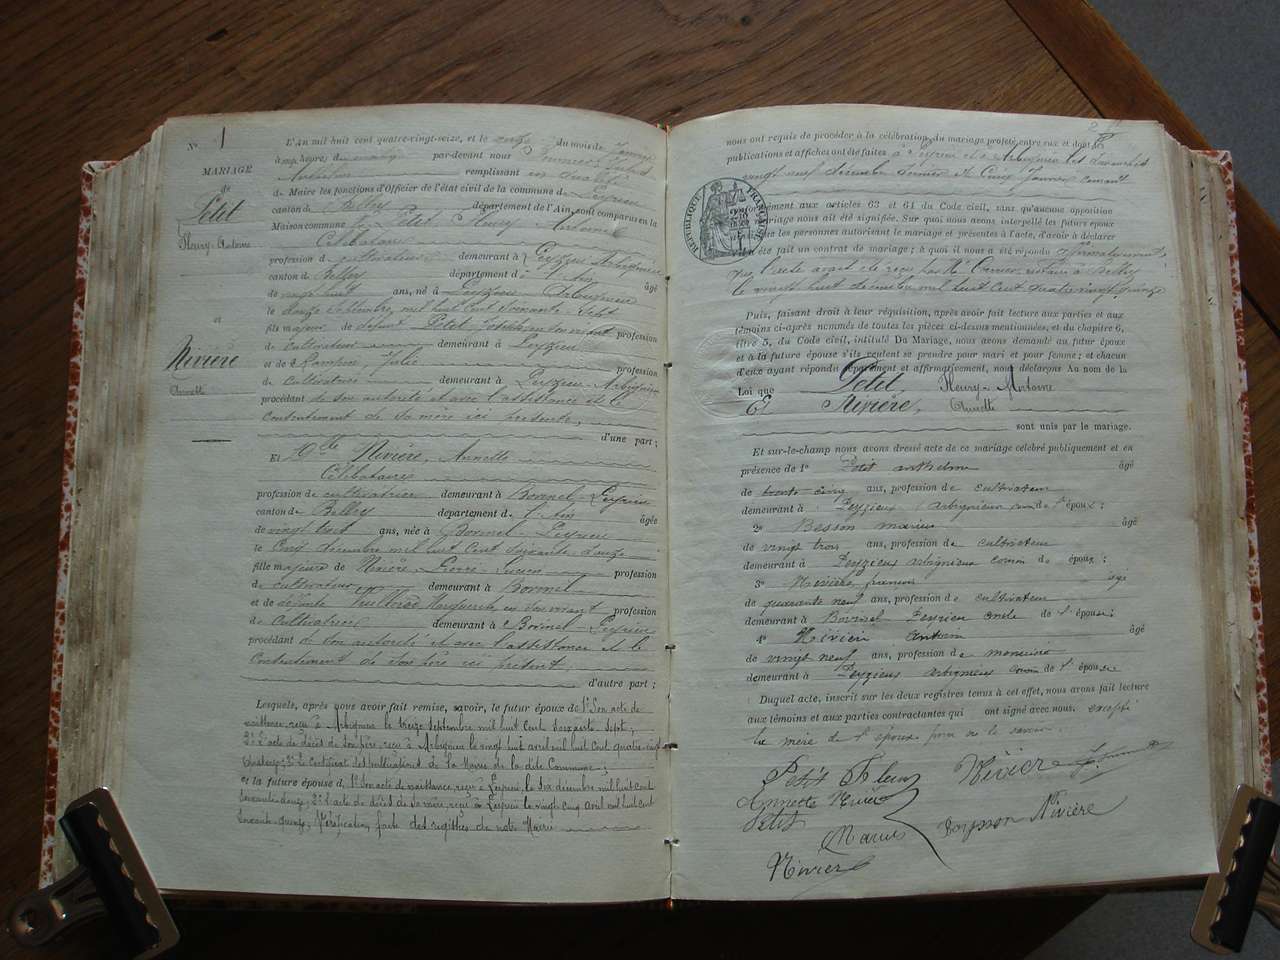 N° 1
MARIAGE
de
Petit
Fleury-Antoine
et
Nivière
Annette
L'An mil huit cent quatre-vingt-seize, et le onze du mois de Janvier
à heures du par-devant nous
Anthelme remplissant en qualité
de Maire les fonctions d'Officier de l'état civil de la commune de Peyrieu
canton de Belley département de l'Ain, sont comparus en la
Maison commune Petit Fleury Antoine
Célibataire
profession de cultivateur demeurant à Peyzieu Arbignieu
canton de Belley département d Ain âgé
de vingt huit ans, né à Peyzieu Arbignieu
le douze Septembre mil huit Cent Soixante Sept
fils majeur de défunt Petit en son vivant profession
de cultivateur demeurant à Peyzieu
et de Rampin Julie profession
de Cultivatrice demeurant à Peyzieu-Arbignieu
procédant de son autorité et avec l'assistance et le
Consentement de Sa mère ici présente,
d'une part ;
Et Dlle Nivière, Annette
Célibataire
profession de cultivatrice demeurant à Bovinel-Peyrieu
canton de Belley département de l'Ain âgée
de vingt trois ans, née à Bovinel-Peyrieu
le Cinq décembre mil huit Cent Soixante douze
fille majeure de Nivière profession
de cultivateur demeurant à Bovinel
et de défunte Marguerite, en son vivant profession
de Cultivatrice demeurant à Bovinel-Peyrieu
procédant de son autorité et avec l'assistance et le
Consentement de Son Père ici présent
d'autre part ;
Lesquels, après nous avoir fait remise, savoir, le futur époux de 1° Son acte de
naissance, reçu à Arbignieu le treize Septembre mil huit Cent Soixante Sept ;
2° L'acte de décès de Son père, reçu à Arbignieu le vingt huit avril mil huit Cent quatre-vingt
3° Le Certificat des publications de la Mairie de la dite Commune ;
et la future épouse d 1° Son acte de naissance, reçu à Peyrieu, le Six décembre mil huit Cent
Soixante douze, 2° L'acte de décès de Sa mère, reçu à Peyrieu le vingt Cinq avril mil huit Cent
Vérification faite des registres de notre Mairie
nous ont requis de procéder à la célébration du mariage projeté entre eux et dont les
publications et affiches ont été faites à Peyrieu et à Arbignieu les dimanches
vingt neuf décembre dernier et Cinq Janvier courant
RÉPUBLIQUE FRANÇAISE
conformément aux articles 63 et 64 du Code civil, sans qu'aucune opposition
mariage nous ait été signifiée. Sur quoi nous avons interpellé les futurs époux
les personnes autorisant le mariage et présentes à l'acte, d'avoir à déclarer
été fait un contrat de mariage ; à quoi il nous a été répondu affirmativement,
que l'acte avait été reçu par Me notaire à Belley
le vingt huit décembre mil huit Cent quatre vingt quinze
Puis, faisant droit à leur réquisition, après avoir fait lecture aux parties et aux
témoins ci-après nommés de toutes les pièces ci-dessus mentionnées, et du chapitre 6,
titre 5, du Code civil, intitulé Du Mariage, nous avons demandé au futur époux
et à la future épouse s'ils veulent se prendre pour mari et pour femme ; et chacun
d'eux ayant répondu séparément et affirmativement, nous déclarons Au nom de la
Loi que Petit Fleury-Antoine
Et Nivière, Annette
sont unis par le mariage.
Et sur-le-champ nous avons dressé acte de ce mariage célébré publiquement et en
présence de 1° Petit anthelme âgé
de trente-cinq ans, profession de cultivateur
demeurant à Peyzieux Arbignieux cousin de l'époux ;
2° Besson marius âgé
de vingt trois ans, profession de cultivateur
demeurant à Peyzieux arbignieux cousin de époux ;
3° Nivière âgé
de quarante neuf ans, profession de cultivateur
demeurant à Bovinel Peyrieu oncle de l'épouse ;
4° Nivière Antoine âgé
de vingt neuf ans, profession de menuisier
demeurant à Peyzieux arbignieux cousin de l'épouse
Duquel acte, inscrit sur les deux registres tenus à cet effet, nous avons fait lecture
aux témoins et aux parties contractantes qui ont signé avec nous. excepté
la mère de l'époux pour ne le savoir
Petit Fleury Nivière
Annette Nivière
Petit
Marius Boysson Nivière
Nivière